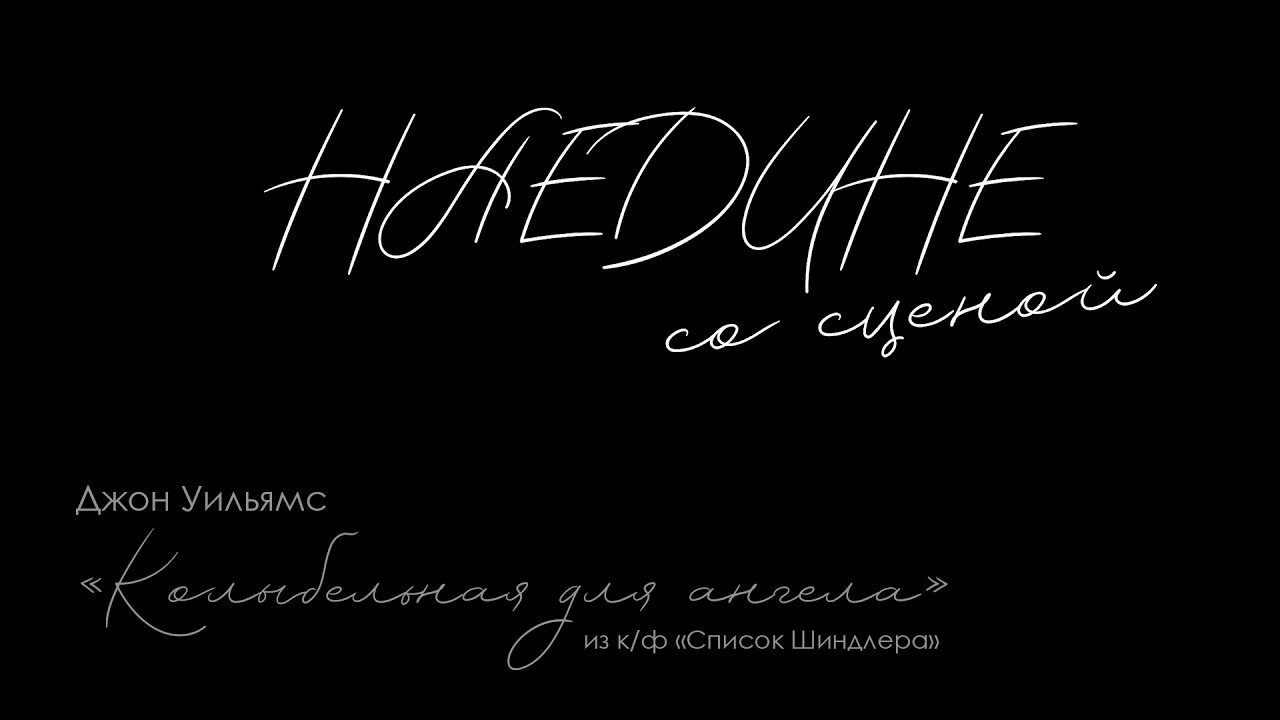 НАЕДИНЕ
со сценой
Джон Уильямс
«Колыбельная для ангела»
из к/ф «Список Шиндлера»